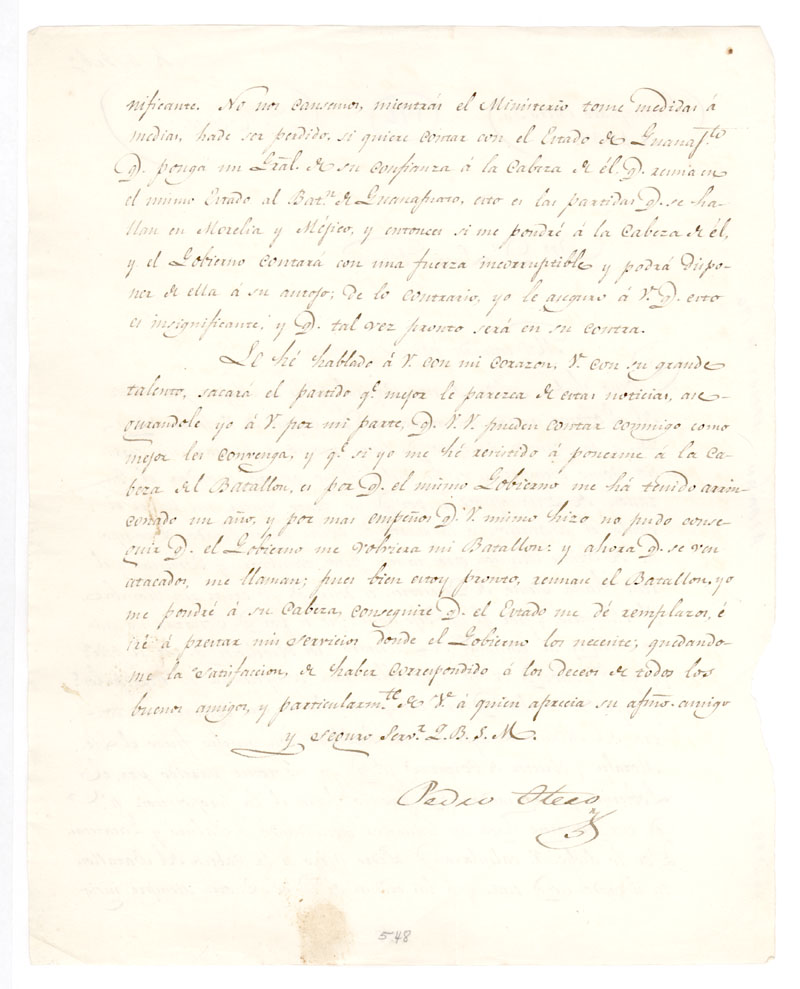 nificante. No nos cansemos, mientras el Ministerio tome medidas á
medias, hade ser perdido, si quiere contar con el Estado de Guanaj.to
q. ponga un Gral. de su confianza á la Cabeza de él. q. reuna en
el mismo Estado al Bat.n de Guanajuato, esto es las partidas q. se ha-
llan en Morelia y Méjico, y entonces si me pondré á la Cabeza de él,
y el Gobierno contará con una fuerza incorruptible y podrá dispo-
ner de ella á su antojo; de lo contrario, yo le aseguro á V. q. esto
es insignificante, y q. tal vez pronto será en su contra.
Le hé hablado á V. con mi corazon, V. con su grande
talento, sacará el partido q.e mejor le parezca de estas noticias, ase-
gurandole yo á V. por mi parte, q. V.V. pueden contar conmigo como
mejor les convenga, y q.e si yo me hé resistido á ponerme á la Ca-
beza del Batallon, es por q. el mismo Gobierno me há tenido arrin-
conado un año, y por mas empeños q. V. mismo hizo no pudo conse-
guir q. el Gobierno me volviera mi Batallon: y ahora q. se ven
atacados, me llaman; pues bien estoy pronto, reunase el Batallon, yo
me pondré á su Cabeza, conseguire q. el Estado me dé remplazos, é
iré á prestar mis servicios donde el Gobierno los necesite; quedando-
me la satisfaccion, de haber correspondido á los deceos de todos los
buenos amigos, y particularm.te de V. á quien aprecia su afmo. amigo
y seguro Serv.r Q. B. S. M.
Pedro Otero
548